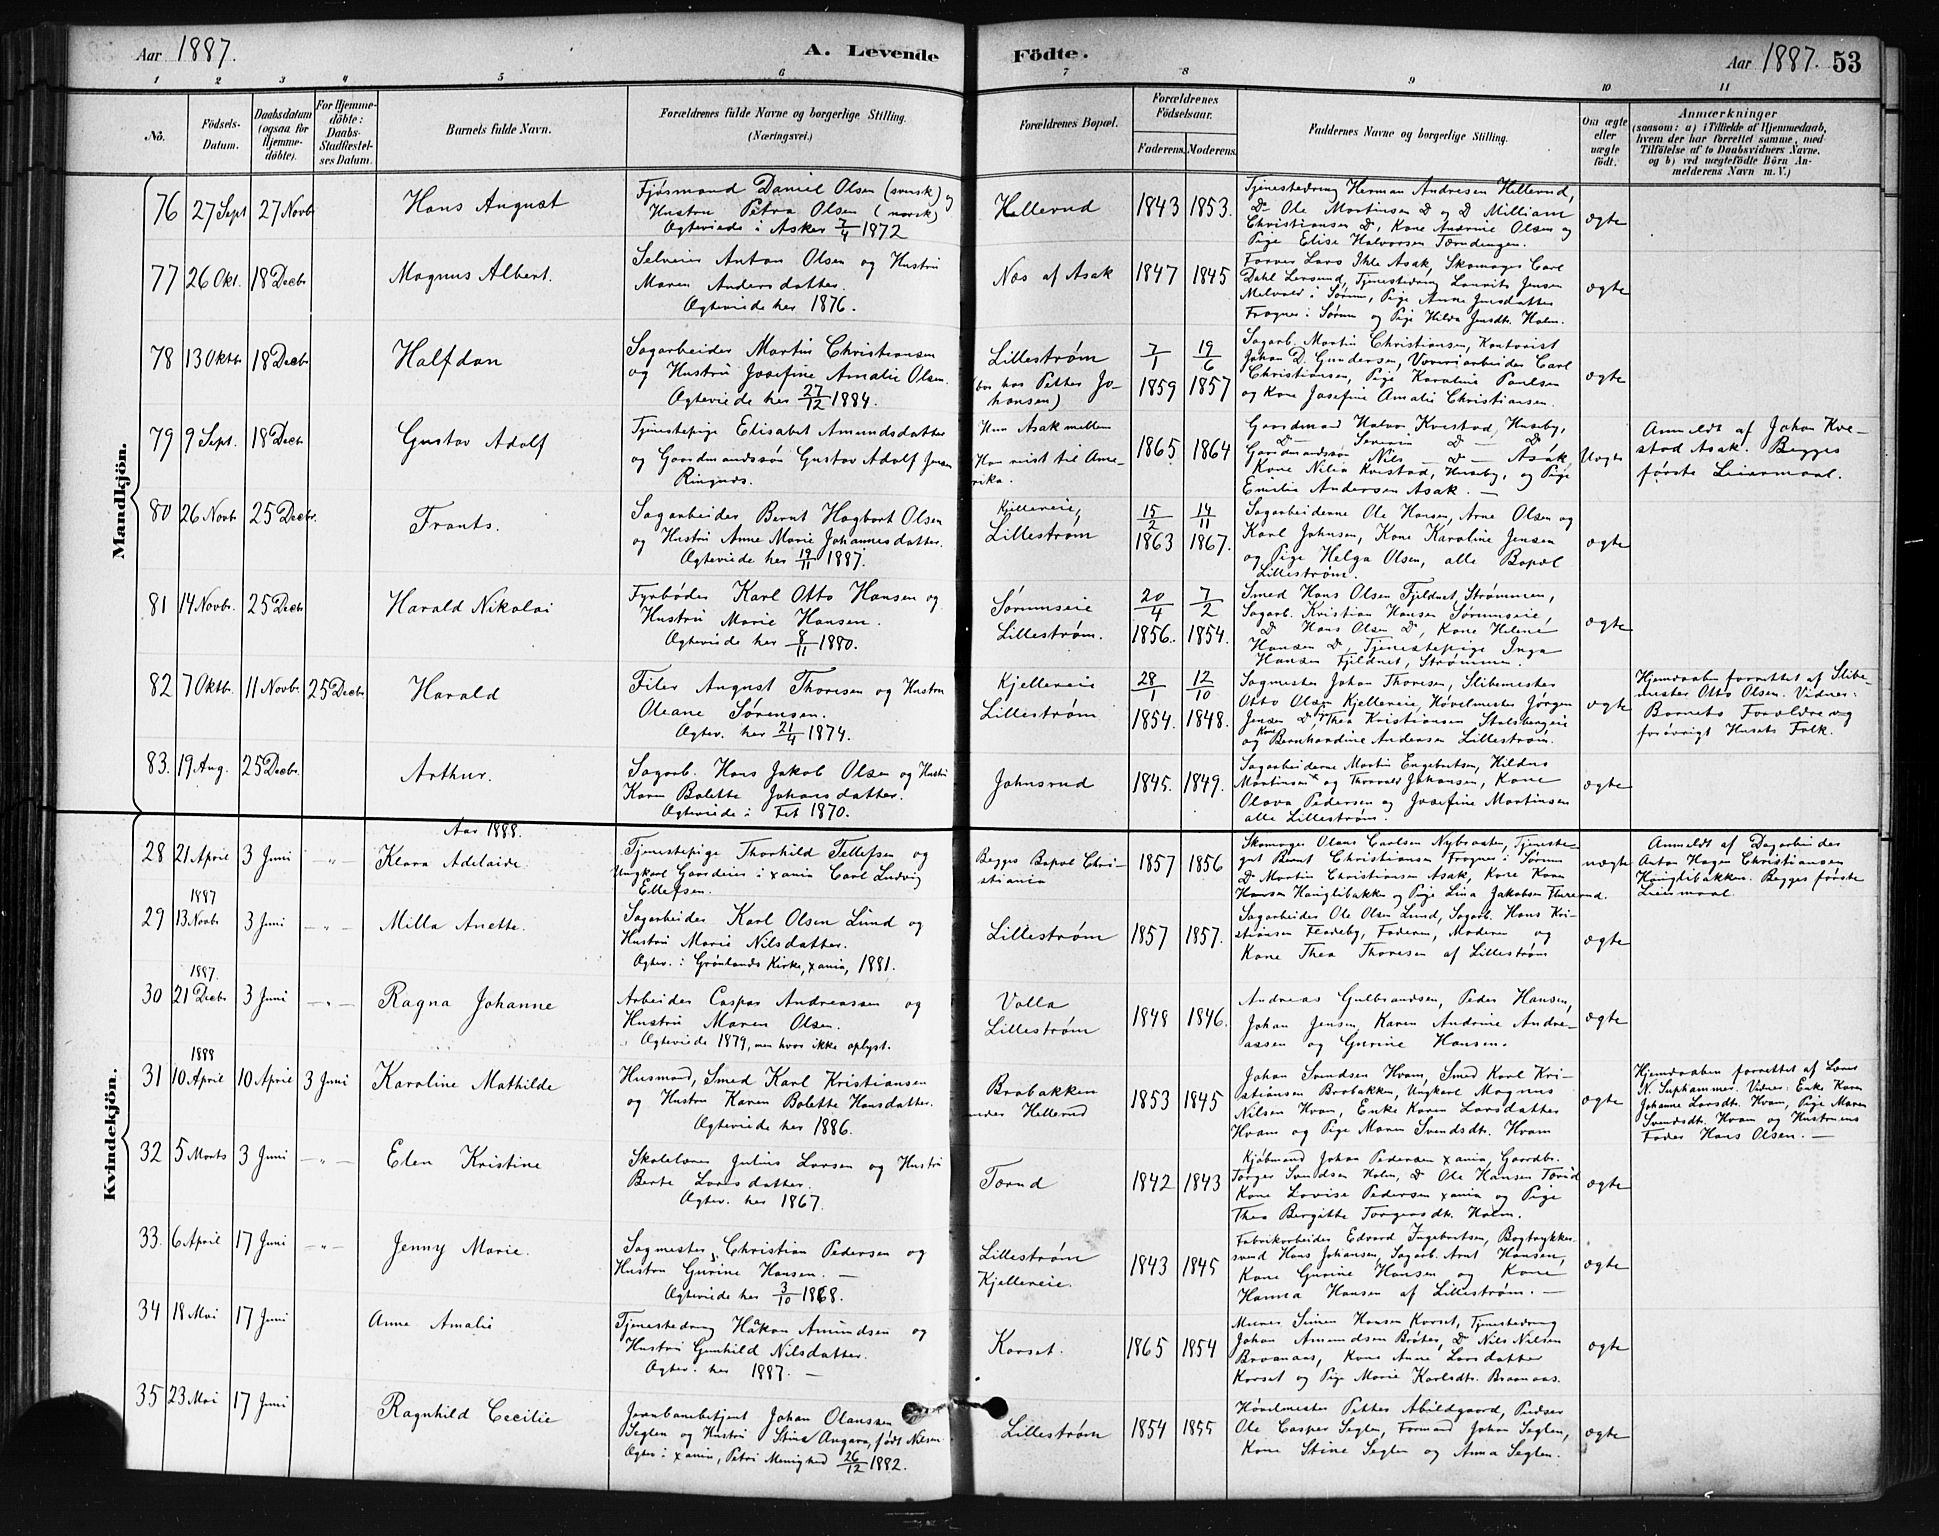 Aar 1887.
A. Levende
Födte.
Aar 1887. 53
1 2 3 4 5 6 7 8 9 10 11
No.
Födsels-Datum.
Daabsdatum (ogsaa for Hjemme-döbte).
For Hjemme-döbte: Daabs-Stadfæstel-ses Datum.
Barnets fulde Navn.
Forældrenes fulde Navne og borgerlige Stilling. (Næringsvei.)
Forældrenes Bopæl.
Forældrenes Födselsaar.
Faderens. Moderens.
Faddernes Navne og borgerlige Stilling.
Om ægte eller uægte födt.
Anmærkninger
(saasom: a) i Tilfælde af Hjemmedaab,
hvem der har forrettet samme, med
Tilföielse af to Daabsvidners Navne.
og b) ved uægtefödte Börn An-
melderens Navn m. V.)
Mandkjön.
76 27 Sept 27 Novb
Hans August
Fjøsmand Daniel Olsen (svensk) og
Hustru Petra Olsen (norsk)
Ægteviede i Asker 7/4 1872
Hellerud
1843 1853.
Tjenestedreng Herman Andresen Hellerud,
Do Ole Martinsen D og D William
Christiansen D, Kone Andrine Olsen og
Pige Elise Halvorsen
ægte
77 26 Okt. 18 Decbr
Magnus Albert.
Selveier Anton Olsen og Hustru
Maren Andersdatter.
Ægteviede her 1876.
Nas af Asak
1847 1845
Lars Ihle Asak, Skomager Carl
Dahl Lersund, Tjenestedreng Lauritz Jensen
Melvold i Sørum, Pige Anne Jensdatter
Frogner i Sørum og Pige Hilda Jensdt. Holm.
ægte
78 13 Oktb 18 Decbr
Halfdan
Sagarbeider Martin Christiansen
og Hustru Josefine Amalie Olsen.
Ægteviede her 27/12 1884.
Lillestrøm
(bor hos Petter Jo-
hansen)
7/1 1859 19/6 1857
Sagarb. Martin Christiansen,
Johan D. Gundersen, Carl
Christiansen, Pige Karoline Paulsen
og Kone Josefine Amalie Christiansen.
ægte
79 9 Sept. 18 Decbr
Gustav Adolf
Tjenestepige Elisabet Amundsdatter
og Gaardmandssøn Gustav Adolf Jensen
Ringnes.
Hun Asak mellem
Han reist til Ame-
rika.
1865 1864
Gaardmand Halvor Kvestad, Huseby,
D — Severin D — D
Gaardmandssøn Nils — D — Asak
Kone Nilia Kvestad, Huseby, og Pige
Emilie Andersen Asak. —
Uægte
Anmeldt af Johan Kve-
stad Asak. Begges
første Leiermaal.
80 26 Novb 25 Decbr.
Frants.
Sagarbeider Bernt Hagbart Olsen
og Hustru Anne Marie Johannesdatter.
Ægteviede her 19/11 1887.
Kjellereie,
Lillestrøm
15/2 1863 14/11 1867.
Sagarbeiderne Ole Hansen, Arne Olsen og
Karl Johnsen, Kone Karoline Jensen
og Pige Helga Olsen, alle Bopæl
Lillestrøm.
ægte
81 14 Novbr. 25 Decbr
Harald Nikolai
Fyrbøder Karl Otto Hansen og
Hustru Marie Hansen.
Ægteviede her 8/11 1880.
Sørumseie
Lillestrøm.
20/4 1856. 7/2 1854.
Smed Hans Olsen Fjeldnet, Strømmen,
Sagarb. Kristian Hansen Sørumseie,
D Hans Olsen D, Kone Helene
Hansen D, Tjenestepige Inga
Hansen Fjeldnet, Strømmen.
ægte
82 7 Oktb. 11 Novbr. 25 Decbr
Harald
Filer August Thoresen og Hustru
Oleane Sørensen.
Ægtev. her 21/4 1874.
Kjellereie
Lillestrøm
28/1 1854. 12/10 1848.
Sagmester Johan Thoresen, Slibemester
Otto Olsen Kjellereie, Høvelmester Jørgen
Jensen D, Thea Kristiansen Stalsbergeie
og Kone Bernhardine Andersen Lillestrøm.
ægte
Hjemdaaben forrettet af Slibe-
mester Otto Olsen. Vidner:
Barnets Forældre og
forøvrigt Husets Folk.
83. 19 Aug. 25 Decbr
Arthur.
Sagarb. Hans Jakob Olsen og Hustru
Karen Bolette Johansdatter.
Ægteviede i Fet 1870.
Johnsrud
1845. 1849.
Sagarbeiderne Martin Engebretsen, Hildus
Martinsen og Thorvald Johansen, Kone
Olava Pedersen og Josefine Martinsen
alle Lillestrøm.
ægte
Kvindekjön.
Aar 1888.
28 21 April 3 Juni — " —
Klara Adelaide.
Tjenestepige Thorhild Tellefsen og
Ungkarl Gaardeier i Xania Carl Ludvig
Ellefsen.
Begges Bopæl Chri-
stiania
1857 1856
Skomager Olaus Carlsen Nybraaten, Tjeneste-
gut Bernt Christiansen Frogner i Sørum
D Martin Christiansen Asak, Kone Karen
Hansen Hauglibakken og Pige Lina Jakobsen
uægte
Anmeldt af Dagarbeider
Anton Hagen Christiansen
Hauglibakken. Begges første
Leiermaal.
1887
29 13 Novb 3 Juni — " —
Milla Anette.
Sagarbeider Karl Olsen Lund og
Hustru Marie Nilsdatter.
Ægtev. i Grønlands Kirke, Xania, 1881.
Lillestrøm
1857 1857.
Sagarbeider Ole Olsen Lund, Sagarb. Hans Kri-
stiansen Fladeby, Faderen, Moderen og
Kone Thea Thoresen af Lillestrøm
ægte
1887.
30 21 Decbr 3 Juni — " —
Ragna Johanne
Arbeider Caspar Andreassen og
Hustru Maren Olsen.
Ægteviede 1879, men hvor ikke oplyst.
Volla
Lillestrøm
1848 1846.
Andreas Gulbrandsen, Peder Hansen,
Johan Jensen, Karen Andrine Andre-
assen og Gurine Hansen.
ægte
1888
31 10 April 10 April 3 Juni
Karoline Mathilde
Husmand, Smed Karl Kristiansen
og Hustru Karen Bolette Hansdatter.
Ægteviede her 1886.
Brobakken
under Hellerud
1853 1845
Johan Svendsen Hvam, Smed Karl Kri-
stiansen Brobakken, Ungkarl Magnus
Nilsen Hvam, Enke Karen Larsdatter
Hvam og Pige Maren Svendsdt. Hvam
ægte
Hjemdaaben forrettet af
N. Suphammer. Vidner: Enke Karen
Johanne Larsdt. Hvam, Pige Maren
Svendsdt. Hvam og Hustruens
Fader Hans Olsen. —
32 5 Marts 3 Juni — " —
Elen Kristine
Skolelærer Julius Larsen og Hustru
Berte Larsdatter.
Ægtev. her 1867.
Tærud
1842 1843
Kjøbmand Johan Pedersen Xania, Gaardbr.
Torger Svendsen Holm, D Ole Hansen Tærud
Kone Lovise Pedersen Xania og Pige
Thea Bergitte Torgersdt. Holm.
ægte
33. 6 April 17 Juni — " —
Jenny Marie.
Sagmester Christian Pedersen og
Hustru Gurine Hansen. —
Ægteviede her 3/10 1868.
Lillestrøm
Kjellereie.
1843 1845
Fabrikarbeider Edvard Ingebretsen, Bogtrykker-
svend Hans Johansen, Sagarb. Arnt Hansen,
Kone Gurine Hansen og Kone
Hanna Hansen af Lillestrøm. —
ægte
34 18 Mai 17 Juni
Anne Amalie
Tjenestedreng Håkon Amundsen og
Hustru Gunhild Nilsdatter.
Ægtev. her 1887. —
Korset.
1865 1854
Murer Simen Hansen Korset, Tjenestedreng
Johan Amundsen Bråten, D Nils Nilsen
Braanaas, Kone Anne Larsdatter
Korset og Pige Marie Karlsdt. Braanaas.
ægte
35 23 Mai 17 Juni
Ragnhild Cecilie
Jernbanebetjent Johan Olaussen
Seglen og Hustru Stina Angara, født Nilsen
Ægtev. i Xania, Petri Menighed 26/12 1882.
Lillestrøm
1854 1855
Høvelmester Petter Abildgaard, Pudser
Ole Casper Seglen, Formand Johan Seglen,
Kone Stine Seglen og Anna Seglen.
ægte